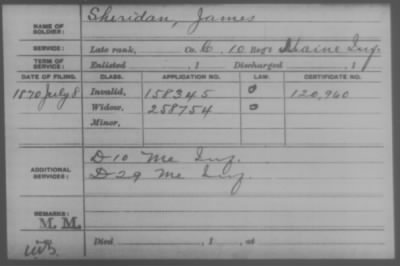 Sheridan, James
NAME OF SOLDIER:
SERVICE: Late rank, Co. C, 10 Maine Inf.
TERM OF SERVICE: Enlisted , 1 Discharged , 1
DATE OF FILING. CLASS. APPLICATION NO. LAW. CERTIFICATE NO.
1870 July 8 Invalid, 158345 0 120,960
Widow, 258754 0
Minor,
D 10 Me Inf.
ADDITIONAL SERVICES: D 29 Me Inf.
REMARKS:
M. M.
Died , 1 , at